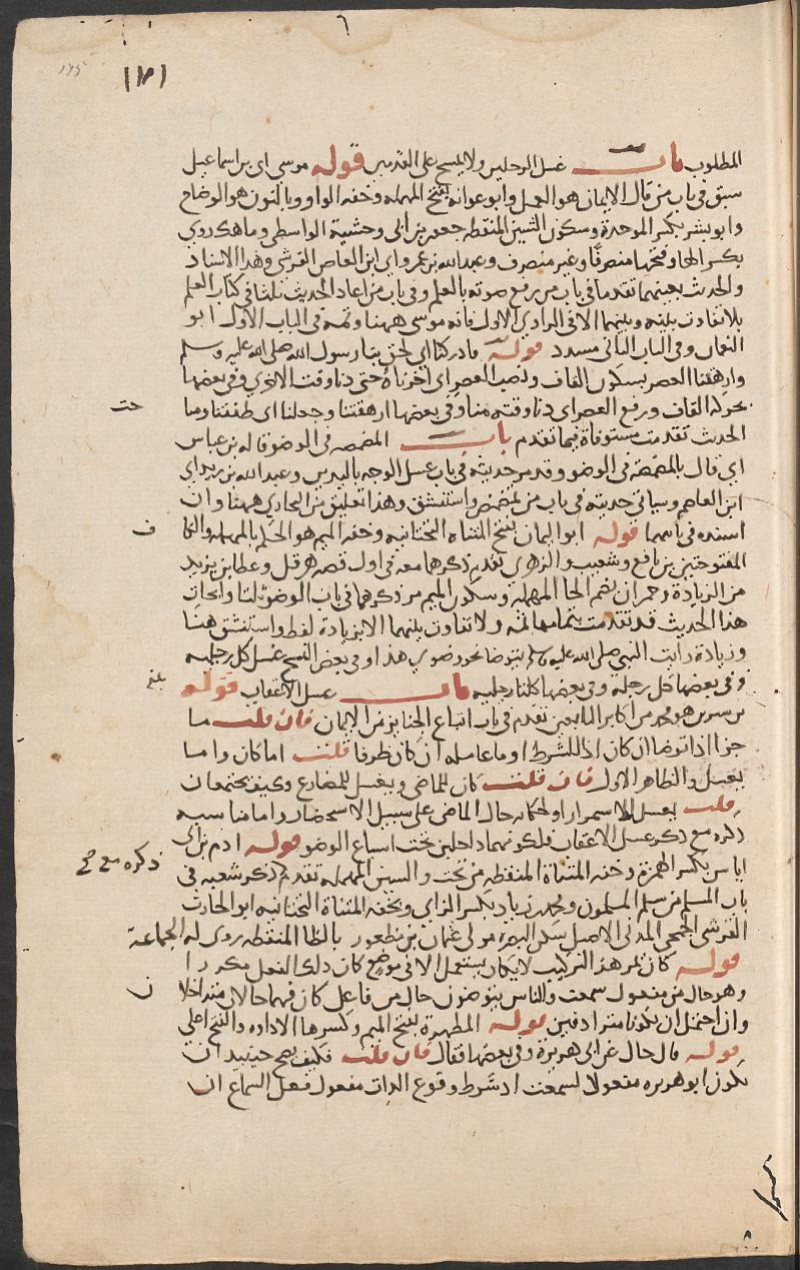 ١٢١
المطلوب باب غسل الرجلين ولا يمسح على القدمين قوله موسى اى بن اسماعيل
سبق فى باب من قال الايمان هو العمل وابو عوانه بفتح المهمله وخفه الواو وبالنون هو الوضاح
وابو بشر بكسر الموحدة وسكون الشين المنقطه جعفر بن ابى وحشية الواسطى وماهك روى
بكسر الها وفتحها منصرفا وغير منصرف وعبد الله بن عمرو اى ابن العاص القرشى وهذا الاسناد
والحديث بعينهما تقدما فى باب من رفع صوته بالعلم وفى باب من اعاد الحديث ثلثا فى كتاب العلم
بلا تفاوت بينه وبينهما الا فى الراوى الاول فانه موسى ههنا وثمه فى الباب الاول ابو
النعمان وفى الباب الثانى مسدد قوله فادركنا اى لحق بنا رسول الله صلى الله عليه وسلم
وارهقنا العصر بسكون القاف ونصب العصر اى اخرناه حتى دنا وقت الاخرى وفى بعضها
بحركة القاف ورفع العصر اى دنا وقته منا وفى بعضها ارهقتنا وجعلنا اى طفقنا وما
الحديث تقدمت مستوفاة فيما تقدم باب المضمضه فى الوضو قاله بن عباس
اى قال بالمضمضة فى الوضو وقد مر حديثه فى باب غسل الوجه باليدين وعبد الله بن زيد اى
ابن العاصم وسياتى حديثه فى باب من تمضمض واستنشق وهذا تعليق من البخارى ههنا وان
اسنده فى باسهما قوله ابو اليمان بفتح المثناه التحتانيه وخفه الميم هو الحكم بالمهمله والكا
المفتوحتين بن نافع وشعيب والزهرى تقدم ذكرهما معه فى اول قصه هرقل وعطا بن يزيد
من الزيادة وحمران بضم الحا المهمله وسكون الميم مر ذكرهما فى باب الوضو ثلثا وابحاث
هذا الحديث قد تقدمت بتمامها ثمه ولا تفاوت بينهما الا بزيادة لفظ واستنشق هنا
وزيادة رايت النبى صلى الله عليه وسلم يتوضا نحو وضوى هذا وفى بعض النسخ غسل كل رجليه
وفى بعضها كل رجله وفى بعضها كلتا رجليه باب غسل الاعقاب قوله
بن سيرين هو محمد من اكابر التابعين تقدم فى باب اتباع الجنايز من الايمان فان قلت ما
جزا اذا توضا ان كان اذا للشرط او ما عامله ان كان ظرفا قلت اما كان واما
يغسل والظاهر الاول فان قلت كان للماضى ويغسل للمضارع وكيف يجتمعان
قلت يغسل للاستمرار او لحكايه حال الماضى على سبيل الاستحضار واما مناسبه
ذكره مع ذكر غسل الاعقاب فلكونهما داخلين تحت اسباغ الوضو قوله ادم بن ابى
اياس بكسر الهمزة وخفه المثناة المنقطه من تحت والسين المهمله تقدم ذكر شعبه فى
باب المسلم من سلم المسلمون ومحمد بن زياد بكسر الزاى وبخفه المثناة التحتانيه ابو الحارث
القرشى الجمحى المدنى الاصل سكن البصرة مولى عثمان بن مظعون بالظا المنقطه روى له الجماعة
قوله كان يمر هذا التركيب لا يكاد يستعمل الا فى موضع كان ذلك الفعل مكررا
وهو حال من مفعول سمعت والناس يتوضون حال من فاعل كان فهما حالان متداخلا
ن
وان احتمل ان يكونا مترادفين قوله المطهرة بفتح الميم وكسرها الاداوه والفتح اعلى
قوله قال حال عن ابى هريرة وفى بعضها فقال فان قلت فكيف يصح حينيذ ان
يكون ابو هريره مفعولا لسمعت اذ شرط وقوع الذات مفعول فعل السماع ان
ف
ذكره مع صح